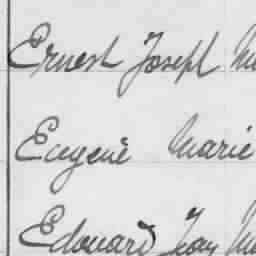 Ernest Joseph M
Eugène Marie
Edouard Jean M